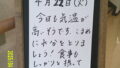 4月22日(火)
今日も気温が
高いそうです。こまめ
に水分をとりま
しょう!食事も
しっかりと摂って